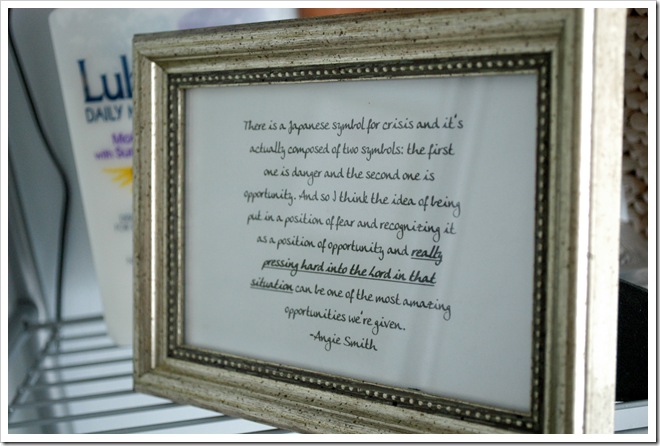 Lub
DAILY M
Mo
with Sun
There is a Japanese symbol for crisis and it's
actually composed of two symbols: the first
one is danger and the second one is
opportunity. And so I think the idea of being
put in a position of fear and recognizing it
as a position of opportunity and really
pressing hard into the Lord in that
situation can be one of the most amazing
opportunities we're given.
~Angie Smith